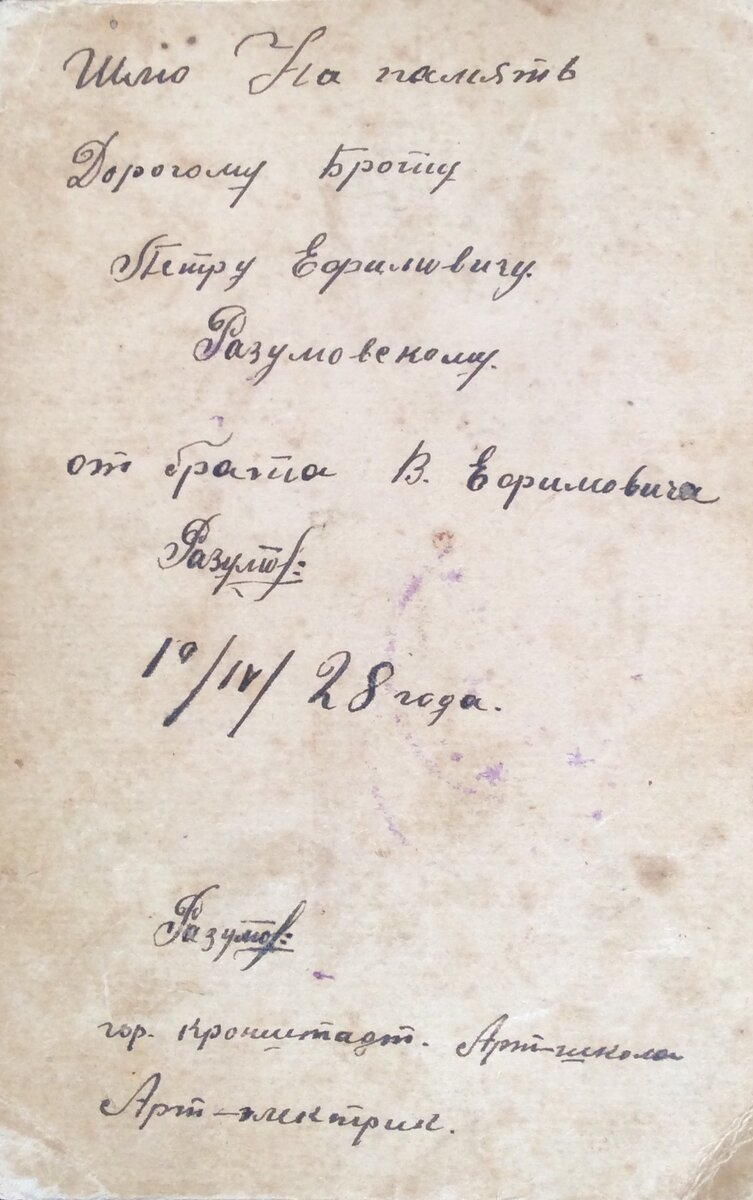 Шлю На память
Дорогому Брату
Петру Ефимовичу.
Разумовскому.
от брата В. Ефимовича
Разумов:
19/IV/28 года.
Разумов:
гор. Кронштадт. Арт-школа
Арт-электрик.